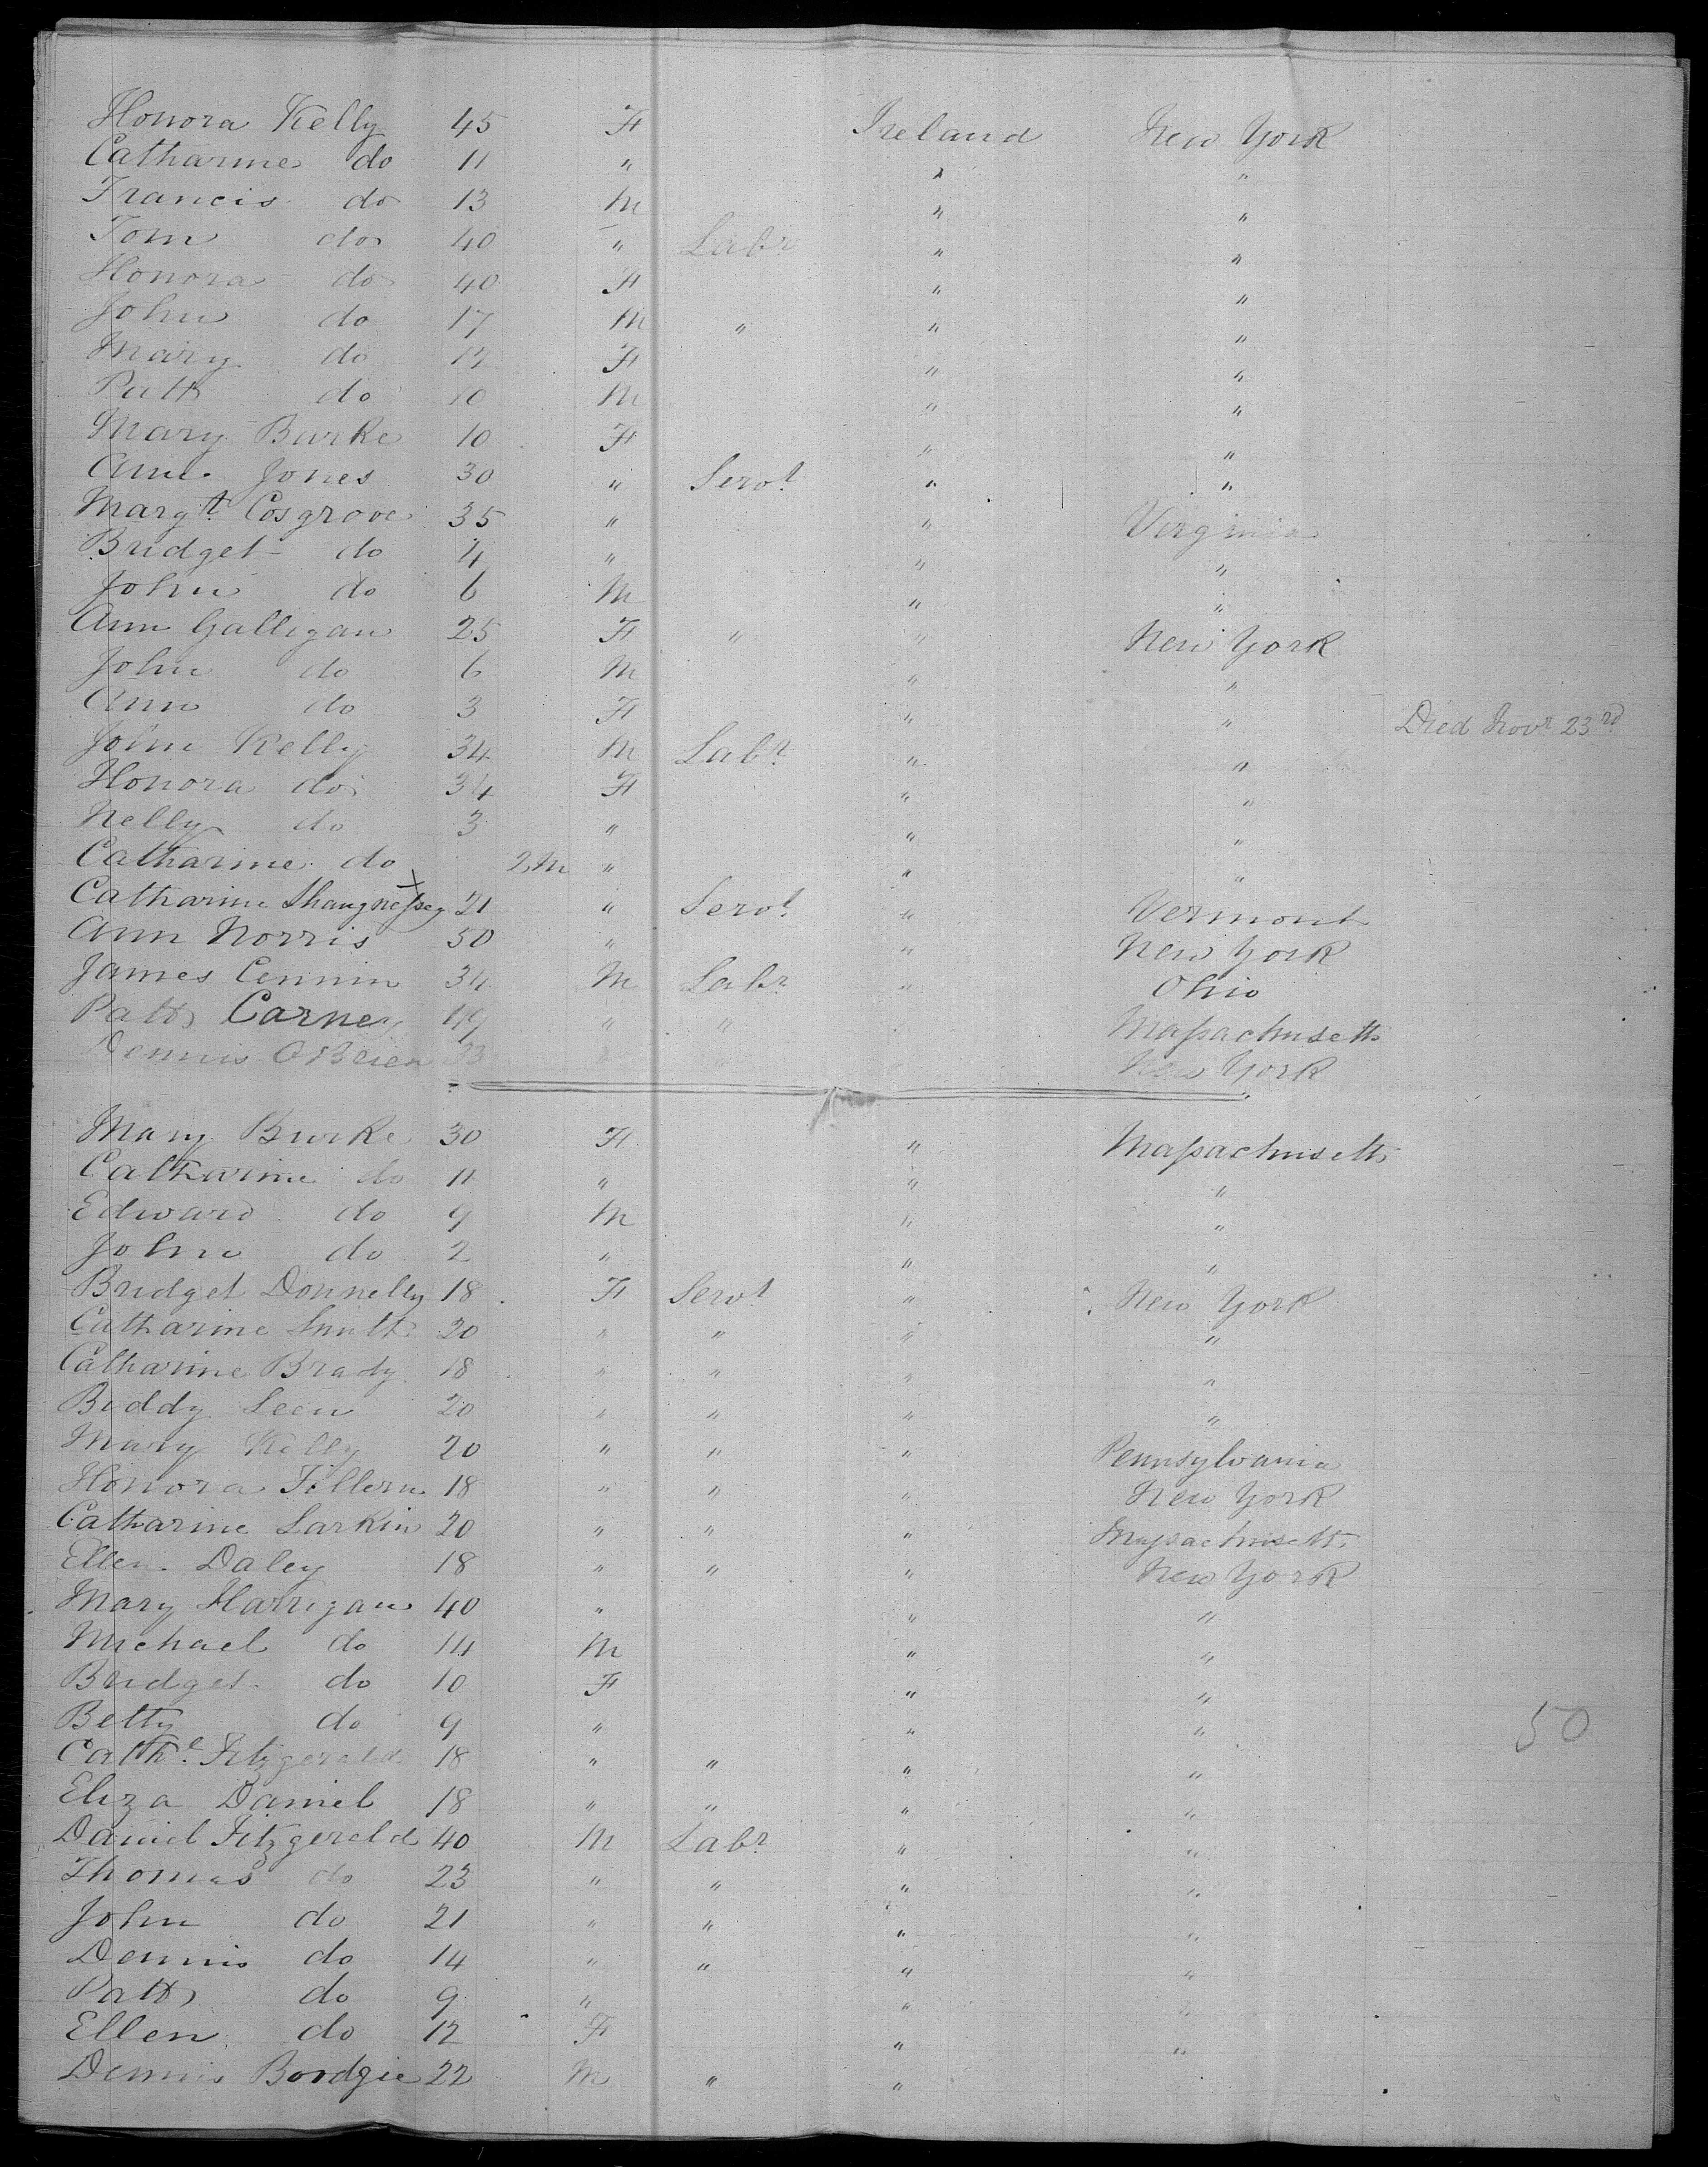 Honora Kelly 45 F Ireland New York
Catharine do 11 " " "
Francis do 13 M " "
Tom do 40 " Labr " "
Honora do 40 F " "
John do 17 M " " "
Mary do F " "
Patk do 10 M " "
Mary Burke 10 F " "
Ann Jones 30 " Servt " "
Margt Cosgrove 35 " " Virginia
Bridget do 4 " " "
John do 6 M " "
Ann Galligan 25 F " " New York
John do 6 M " "
Ann do 3 F " " Died Novr 23rd
John Kelly 34 M Labr " "
Honora do 34 F " "
Nelly do 3 " " "
Catharine do 2M " " "
Catharine Shaugnessey 21 " Servt " Vermont
Ann Norris 50 " " New York
James Cennin 34 M Labr " Ohio
Patk Carney 49 " " Massachusetts
Dennis OBrien 23 " " New York
Mary Burke 30 F " Massachusetts
Catharine do 11 " " "
Edward do 9 M " "
John do 2 " " "
Bridget Donnelly 18 F Servt " New York
Catharine Smith 20 " " " "
Catharine Brady 18 " " " "
Biddy Leen 20 " " " "
Mary Kelly 20 " " " Pennsylvania
Honora 18 " " " New York
Catharine Larkin 20 " " " Massachusetts
Ellen Daley 18 " " " New York
Mary Harrigan 40 " " "
Michael do 14 M " "
Bridget do 10 F " "
Betty do 9 " " "
50
Cathe Fitzgerald 18 " " " "
Eliza Daniel 18 " " " "
Daniel Fitzgerald 40 M Labr " "
Thomas do 23 " " " "
John do 21 " " " "
Dennis do 14 " " " "
Patk do 9 " " "
Ellen do 12 F " "
Dennis Bordgie 22 M " "